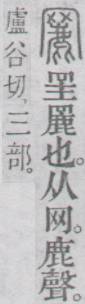 䍡罜䍡也。从网。鹿聲。
盧谷切、三部。